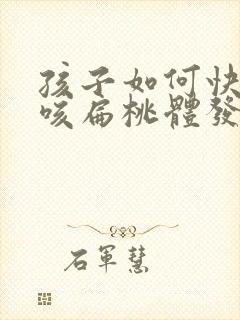 孩子如何快
咳扁桃體發
石軍慧